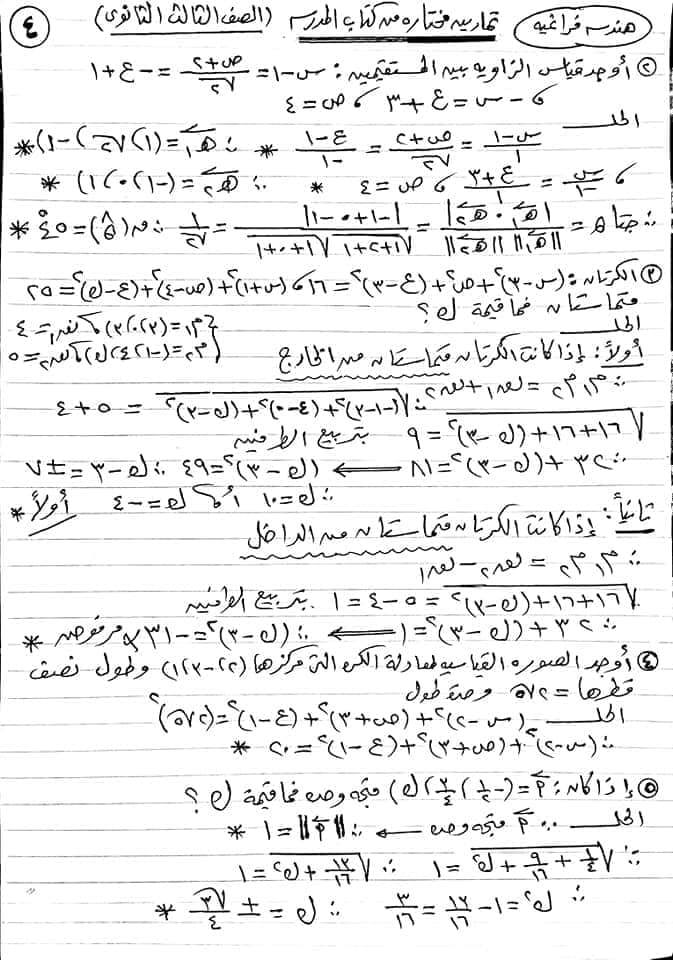 ٤
هندسه فراغيه
تمارين مختاره من كتاب المدرسه (الصف الثالث الثانوى)
② أوجد قياس الزاويه بين المستقيمين : س-١ = (ص+٢)/√٢ = -ع+١
، -س = ع+٣ ، ص = ٤
الحل
(س-١)/١ = (ص+٢)/√٢ = (ع-١)/-١ * ∴ هـ١ = (١، √٢، -١) *
، س/-١ = (ع+٣)/١ ، ص = ٤ * ∴ هـ٢ = (-١، ٠، ١) *
∴ جتا هـ = |هـ١ · هـ٢| / ||هـ١|| ||هـ٢|| = |-١+٠-١| / √(١+٢+١) √(١+٠+١) = ١/√٢ ∴ ق(هـ) = ٤٥° *
③ الكرتان : (س-٣)²+ص²+(ع-٣)² = ١٦ ، (س+١)²+(ص-٤)²+(ع-ك)² = ٢٥
متماستان فما قيمة ك ؟
الحل
{م١ = (٣، ٠، ٣) ، نق١ = ٤
{م٢ = (-١، ٤، ك) ، نق٢ = ٥
أولاً : إذا كانت الكرتان متماستان من الخارج
∴ م١م٢ = نق١ + نق٢
∴ √((-١-٣)²+(٤-٠)²+(ك-٣)²) = ٥+٤
√(١٦+١٦+(ك-٣)²) = ٩ بتربيع الطرفين
∴ ٣٢+(ك-٣)² = ٨١ ⟵ (ك-٣)² = ٤٩ ∴ ك-٣ = ±٧
∴ ك = ١٠ أ، ك = -٤ أولاً *
ثانياً : إذا كانت الكرتان متماستان من الداخل
∴ م١م٢ = نق٢ - نق١
√(١٦+١٦+(ك-٣)²) = ٥-٤ = ١ بتربيع الطرفين
∴ ٣٢+(ك-٣)² = ١ ⟵ ∴ (ك-٣)² = -٣١ مرفوضه *
④ أوجد الصوره القياسيه لمعادلة الكره التى مركزها (٢، -٣، ١) وطول نصف
قطرها = ٢√٥ وحدة طول
الحل (س-٢)²+(ص+٣)²+(ع-١)² = (٢√٥)²
∴ (س-٢)²+(ص+٣)²+(ع-١)² = ٢٠ *
⑤ إذا كان : أ = (-١/٢، ٣/٤، ك) متجه وحده فما قيمة ك ؟
الحل ∵ أ متجه وحده ⟵ ∴ ||أ|| = ١ *
∴ √(١/٤ + ٩/١٦ + ك²) = ١ ∴ √(١٣/١٦ + ك²) = ١
∴ ك² = ١ - ١٣/١٦ = ٣/١٦ ∴ ك = ± √٣/٤ *